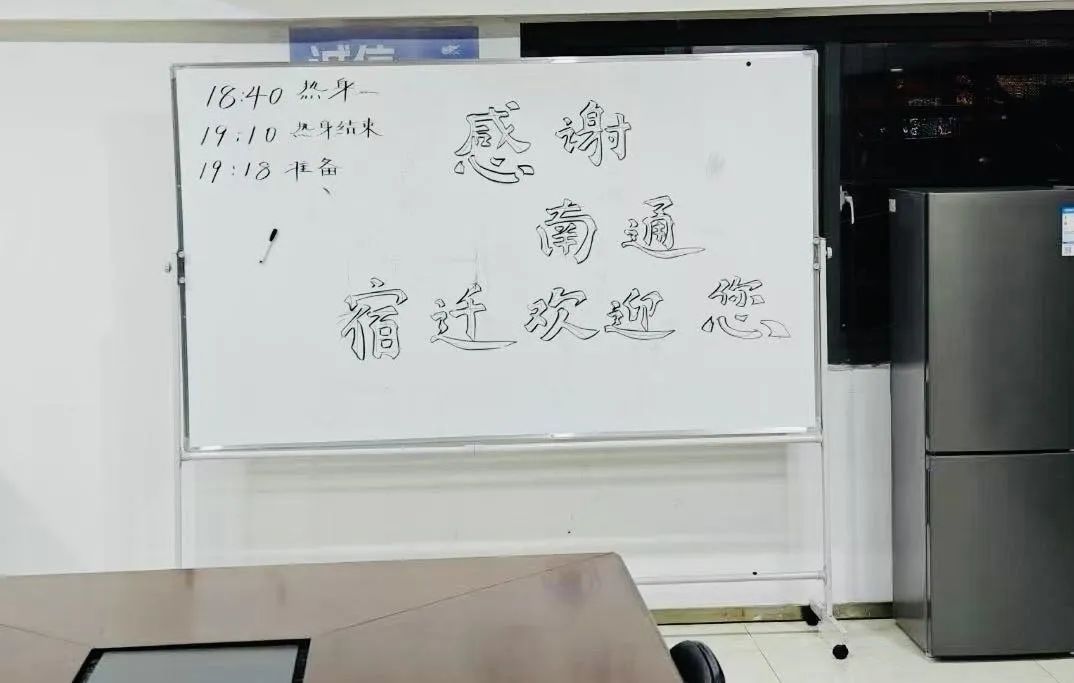 诚信
18:40 热身
19:10 热身结束
19:18 准备
感谢
南通
宿迁欢迎您